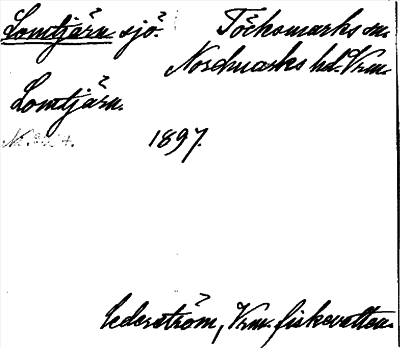 Lomtjärn sjö. Töcksmarks sn.
Nordmarks hd. Vrm.
Lomtjärn.
1897.
Cederström, Vrm. fiskevatten.